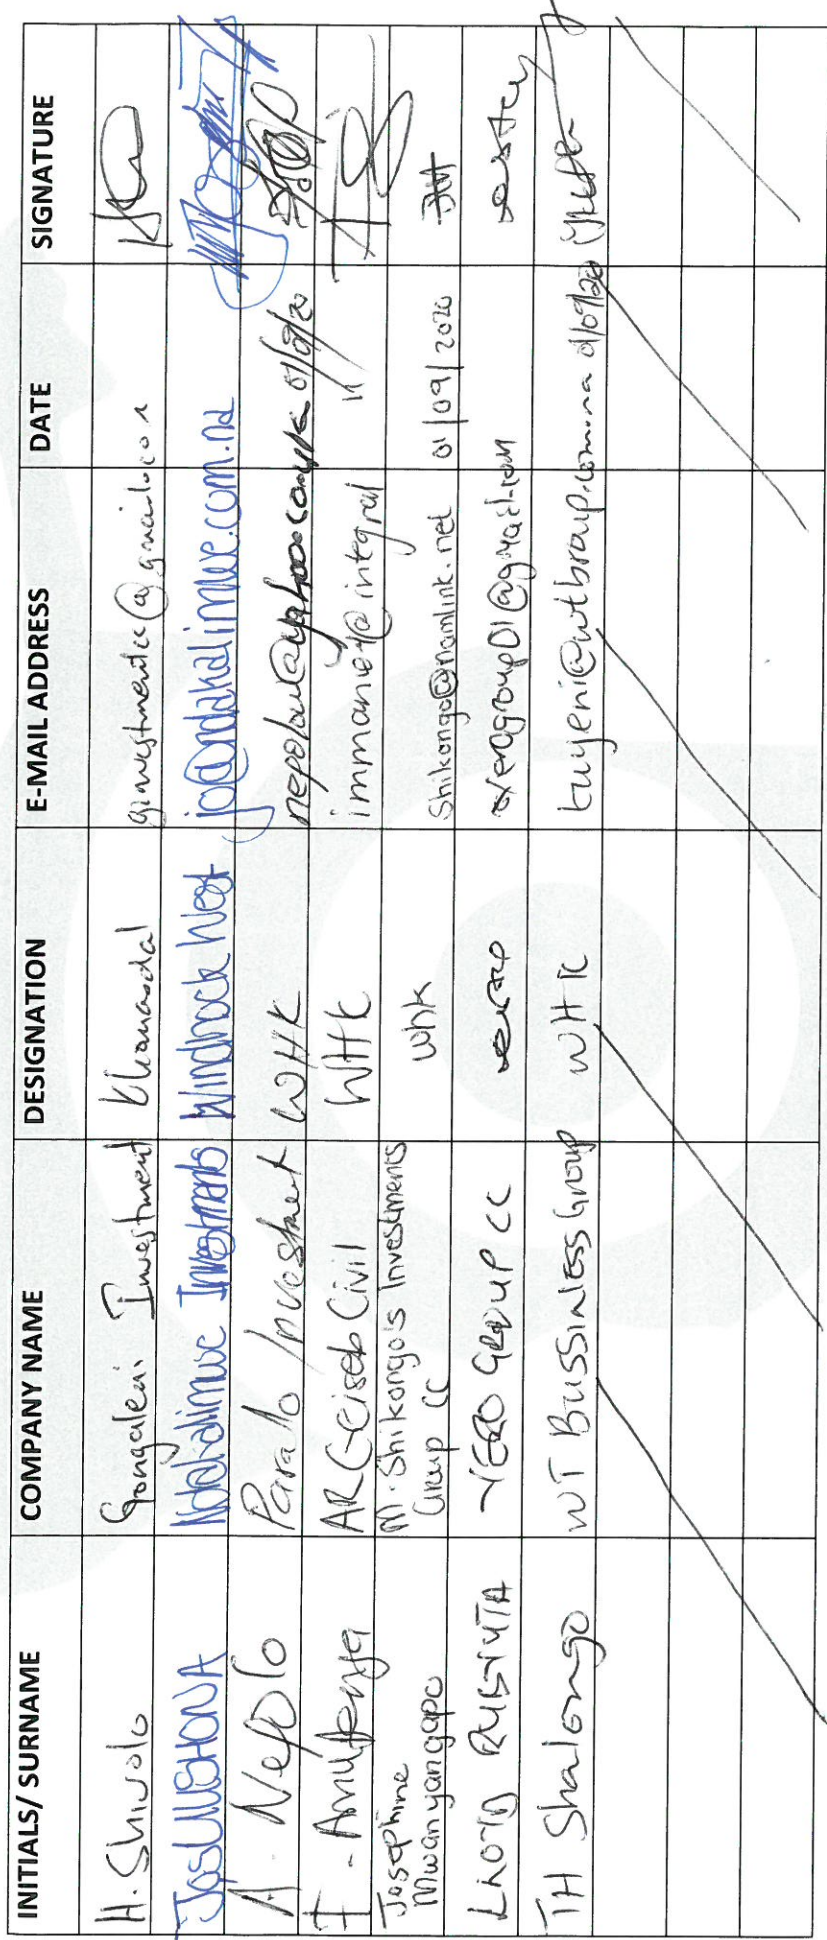 INITIALS/ SURNAME COMPANY NAME DESIGNATION E-MAIL ADDRESS DATE SIGNATURE
H. Shivolo Gongaleni Investment Khomasdal
Jos UUSHONA Ndakalimwe Investments Windhoek West jo@ndakalimwe.com.na
A. Nepolo Paralo Investment WHK 01/09/20
I. Amutenya ARC-Eiseb Civil WHK immanuel@integral "
Josephine Mwanyangapo M. Shikongo's Investments Group CC Whk Shikongo@namlink.net 01/09/2020
YERO GROUP CC yerogroup01@gmail.com
TH Shalongo WT BUSSINESS Group WHK tuyeni@wtbgroup.com.na 01/09/20